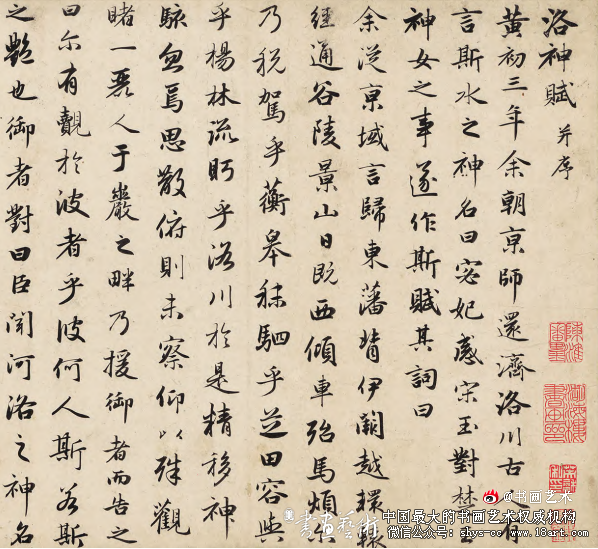 洛神賦 并序
黄初三年余朝京師還濟洛川古人有
言斯水之神名曰宓妃感宋玉對楚王
神女之事遂作斯賦其詞曰
余從京域言歸東藩背伊闕越轘轅
經通谷陵景山日既西傾車殆馬煩
乃税駕乎蘅皋秣駟乎芝田容與
乎楊林流眄乎洛川於是精移神
駭忽焉思散俯則未察仰以殊觀
睹一麗人于巖之畔乃援御者而告之
曰尔有覿於彼者乎彼何人斯若斯
之艷也御者對曰臣聞河洛之神名
書畫藝術
@书画艺术
中国最大的书画艺术权威机构
微信公众号:shys-cc www.18art.com